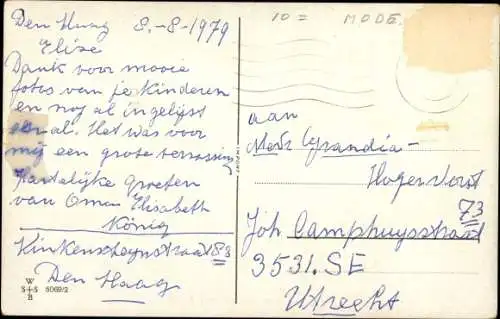 Den Haag 8.-8-1979
Elise
Dank voor mooie
fotos van je kinderen
en nog al ingelijst
en al. Het was voor
mij een grote verrassing
Hartelijke groeten
van Oma Elisabeth
König
83
Den Haag
W
S+S 6069/2
B
10 = MODE.
aan
Medr Grandia-
Hogervorst
73
Joh Camphuysstraat
3531. SE
Utrecht